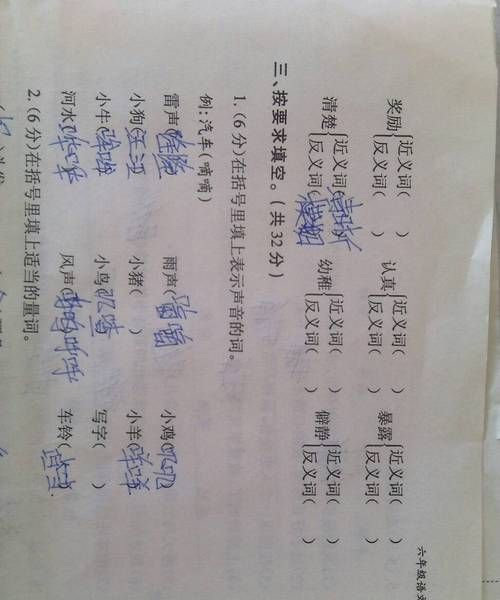 六年级语文
奖励{近义词(    ) 反义词(    )  认真{近义词(    ) 反义词(    )  暴露{近义词(    ) 反义词(    )
清楚{近义词(清晰) 反义词(模糊)  幼稚{近义词(    ) 反义词(    )  僻静{近义词(    ) 反义词(    )
三、按要求填空。(共32分)
1. (6分)在括号里填上表示声音的词。
例:汽车(嘀嘀)
雷声(隆隆)  雨声(  )  小鸡(叽叽)
小狗(汪汪)  小猪(    )  小羊(咩咩)
小牛(  )  小鸟(  )  写字(    )
河水(哗哗)  风声(  )  车铃(  )
2. (6分)在括号里填上适当的量词。